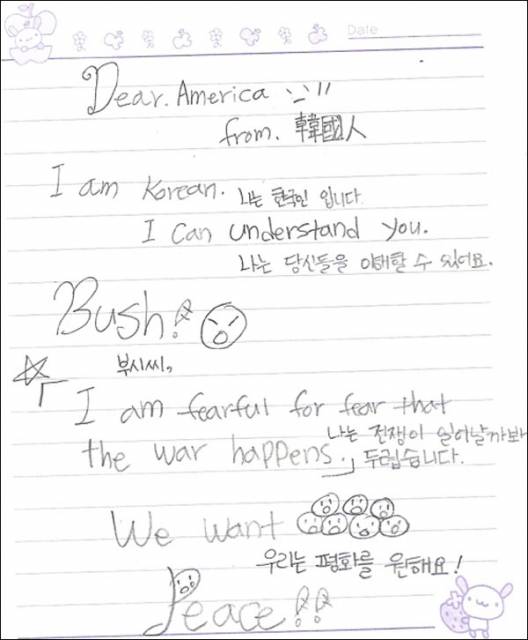 Date
Dear. America
from. 韓國人
I am Korean. 나는 한국인 입니다
I can understand you.
나는 당신들을 이해할 수 있어요.
Bush!
부시씨,
I am fearful for fear that
나는 전쟁이 일어날까봐
the war happens. 두렵습니다.
We want
우리는 평화를 원해요!
Peace!!